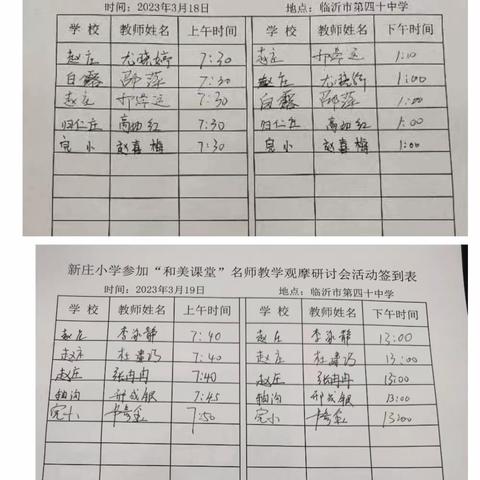 时间：2023年3月18日 地点：临沂市第四十中学
学校 教师姓名 上午时间 学校 教师姓名 下午时间
赵庄 尤晓婷 7:30 赵庄 1:10
白露 邵萍 7:30 赵庄 1:00
赵庄 7:30 白露 邵萍 1:00
归仁庄 高幼红 7:30 归仁庄 高幼红 1:00
完小 赵喜梅 7:30 完小 赵喜梅 1:00
新庄小学参加“和美课堂”名师教学观摩研讨会活动签到表
时间：2023年3月19日 地点：临沂市第四十中学
学校 教师姓名 上午时间 学校 教师姓名 下午时间
赵庄 7:40 赵庄 13:00
赵庄 7:40 赵庄 13:00
赵庄 张冉冉 7:40 赵庄 张冉冉 13:00
轴沟 邢成银 7:45 轴沟 邢成银 13:00
完小 7:50 完小 13:00